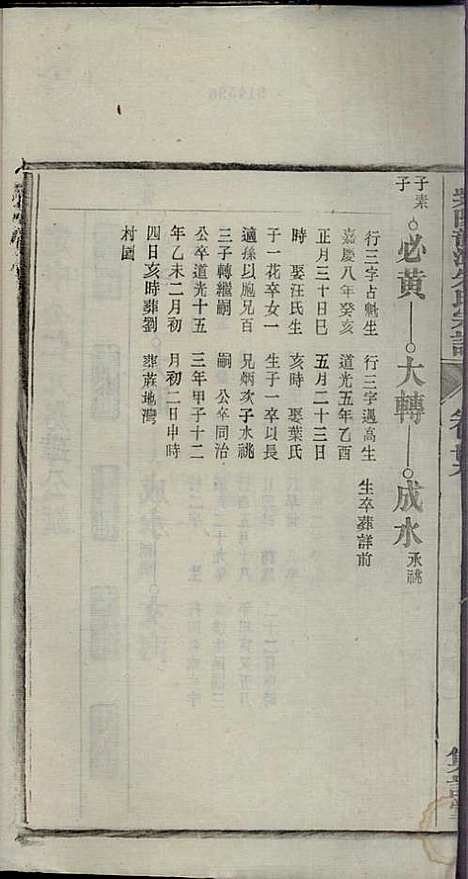 子素
子
必黄
大轉
成水承祧
行三字占魁生
嘉慶八年癸亥
正月三十日巳
時 娶汪氏生
于一花卒女一
適孫以胞兄百
三子轉繼嗣
公卒道光十五
年乙未二月初
四日亥時葬劉
村園
行三字邁高生
道光五年乙酉
五月二十三日
亥時 娶葉氏
生于一卒以長
兄炳次子水祧
嗣 公卒同治
三年甲子十二
月初二日申時
葬蔴地灣
生卒葬詳前